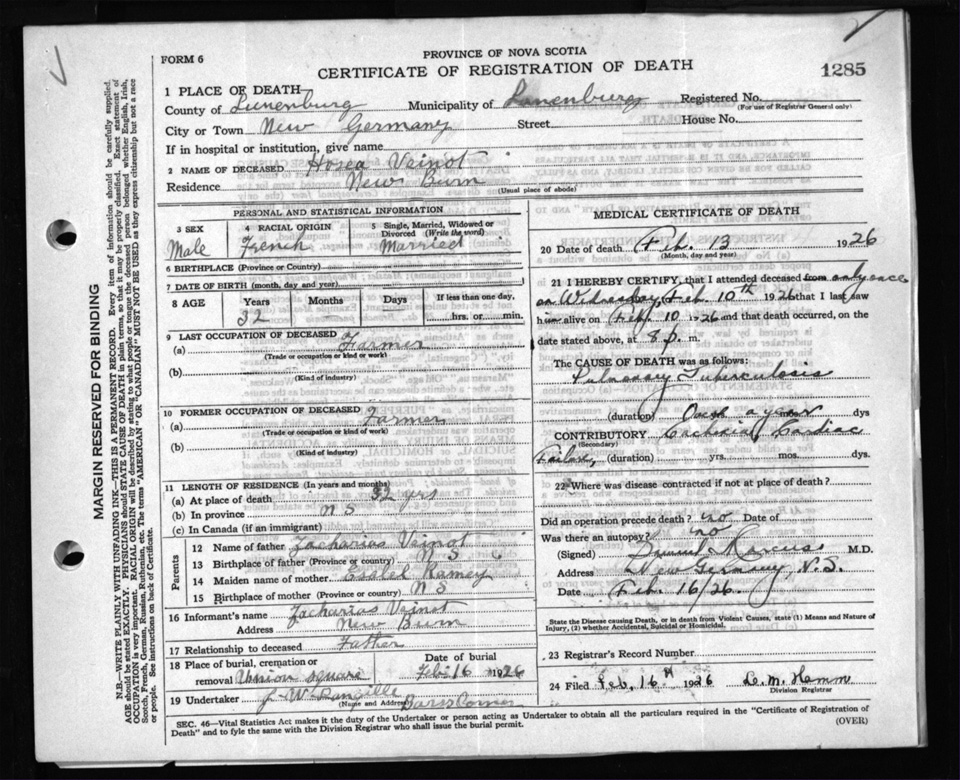 FORM 6
PROVINCE OF NOVA SCOTIA
CERTIFICATE OF REGISTRATION OF DEATH
1285
MARGIN RESERVED FOR BINDING
N.B.—WRITE PLAINLY WITH UNFADING INK—THIS IS A PERMANENT RECORD. Every item of information should be carefully supplied.
AGE should be stated EXACTLY. PHYSICIANS should STATE CAUSE OF DEATH in plain terms, so that it may be properly classified. Exact statement of
OCCUPATION is very important. RACIAL ORIGIN will be described by stating to what people or tongue the deceased person belonged whether English, Irish,
Scotch, French, German, Russian, Ruthenian, etc. The terms "AMERICAN" or "CANADIAN" MUST NOT BE USED as they express citizenship but not a race
or people. See instructions on back of Certificate.
1 PLACE OF DEATH
County of Lunenburg Municipality of Lunenburg Registered No.
(For use of Registrar General only)
City or Town New Germany Street House No.
If in hospital or institution, give name
2 NAME OF DECEASED Hosea Veinot
Residence New Burn
(Usual place of abode)
PERSONAL AND STATISTICAL INFORMATION
3 SEX Male
4 RACIAL ORIGIN French
5 Single, Married, Widowed or Divorced (Write the word) Married
6 BIRTHPLACE (Province or Country)
7 DATE OF BIRTH (month, day and year)
8 AGE Years 32 Months Days If less than one day, hrs. or min.
9 LAST OCCUPATION OF DECEASED
(a) Farmer
(Trade or occupation or kind or work)
(b)
(Kind of industry)
10 FORMER OCCUPATION OF DECEASED
(a) Farmer
(Trade or occupation or kind of work)
(b)
(Kind of industry)
11 LENGTH OF RESIDENCE (In years and months)
(a) At place of death 32 yrs
(b) In province N S
(c) In Canada (if an immigrant)
Parents
12 Name of father Zacharias Veinot
13 Birthplace of father (Province or country) S
14 Maiden name of mother Ramey
15 Birthplace of mother (Province or country) N S
16 Informant's name Zacharias Veinot
Address New Burn
17 Relationship to deceased Father
18 Place of burial, cremation or removal Union Square
Date of burial Feb 16 1926
19 Undertaker J. W.
(Name and Address) Corner
MEDICAL CERTIFICATE OF DEATH
20 Date of death Feb. 13 1926
(Month, day and year)
21 I HEREBY CERTIFY, that I attended deceased from only once
on Wednesday, Feb. 10th 1926 that I last saw
him alive on Feb. 10 1926 and that death occurred, on
date stated above, at 8 p. m.
The CAUSE OF DEATH was as follows:
Pulmonary Tuberculosis
(duration) a year dys
CONTRIBUTORY Cachexia, Cardiac
(Secondary)
Failure, (duration) yrs. mos. dys.
22 Where was disease contracted if not at place of death?
Did an operation precede death? no Date of
Was there an autopsy? no
(Signed) Marcus M.D.
Address New Germany, N.S.
Date Feb. 16/26.
State the Disease causing Death, or in death from Violent Causes, state (1) Means and Nature of
Injury, (2) whether Accidental, Suicidal or Homicidal.
23 Registrar's Record Number
24 Filed Feb. 16th 1926 Hamm
Division Registrar
SEC. 46—Vital Statistics Act makes it the duty of the Undertaker or person acting as Undertaker to obtain all the particulars required in the "Certificate of Registration of
Death" and to fyle the same with the Division Registrar who shall issue the burial permit.
(OVER)